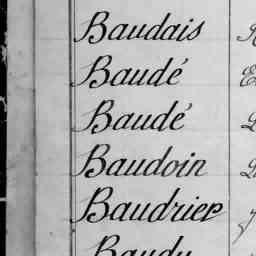 Baudais
Baudé
Baudé
Baudoin
Baudrier
Baudu